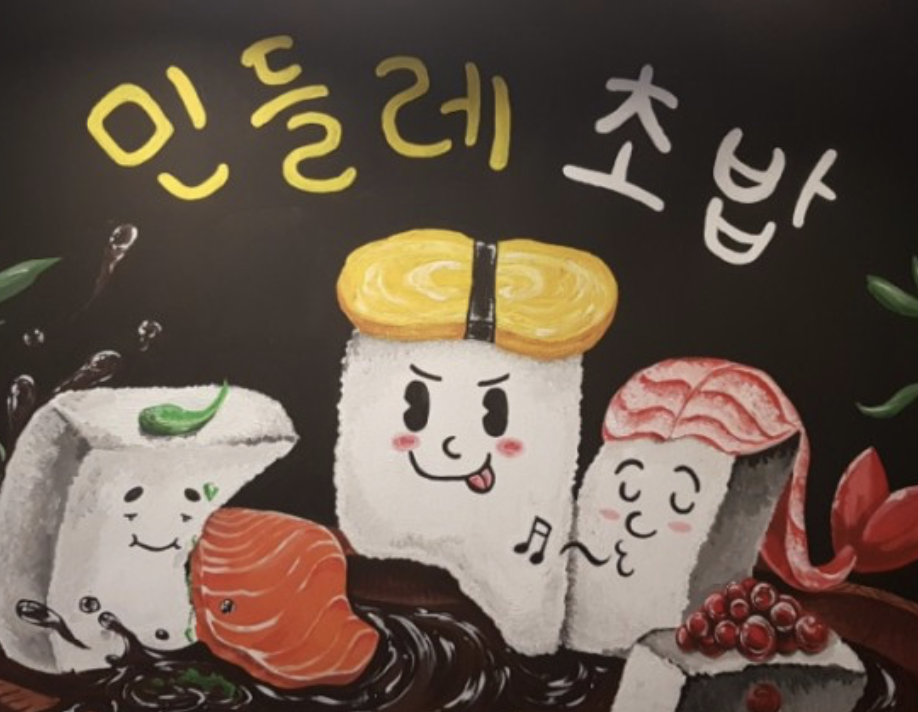 민들레 초밥